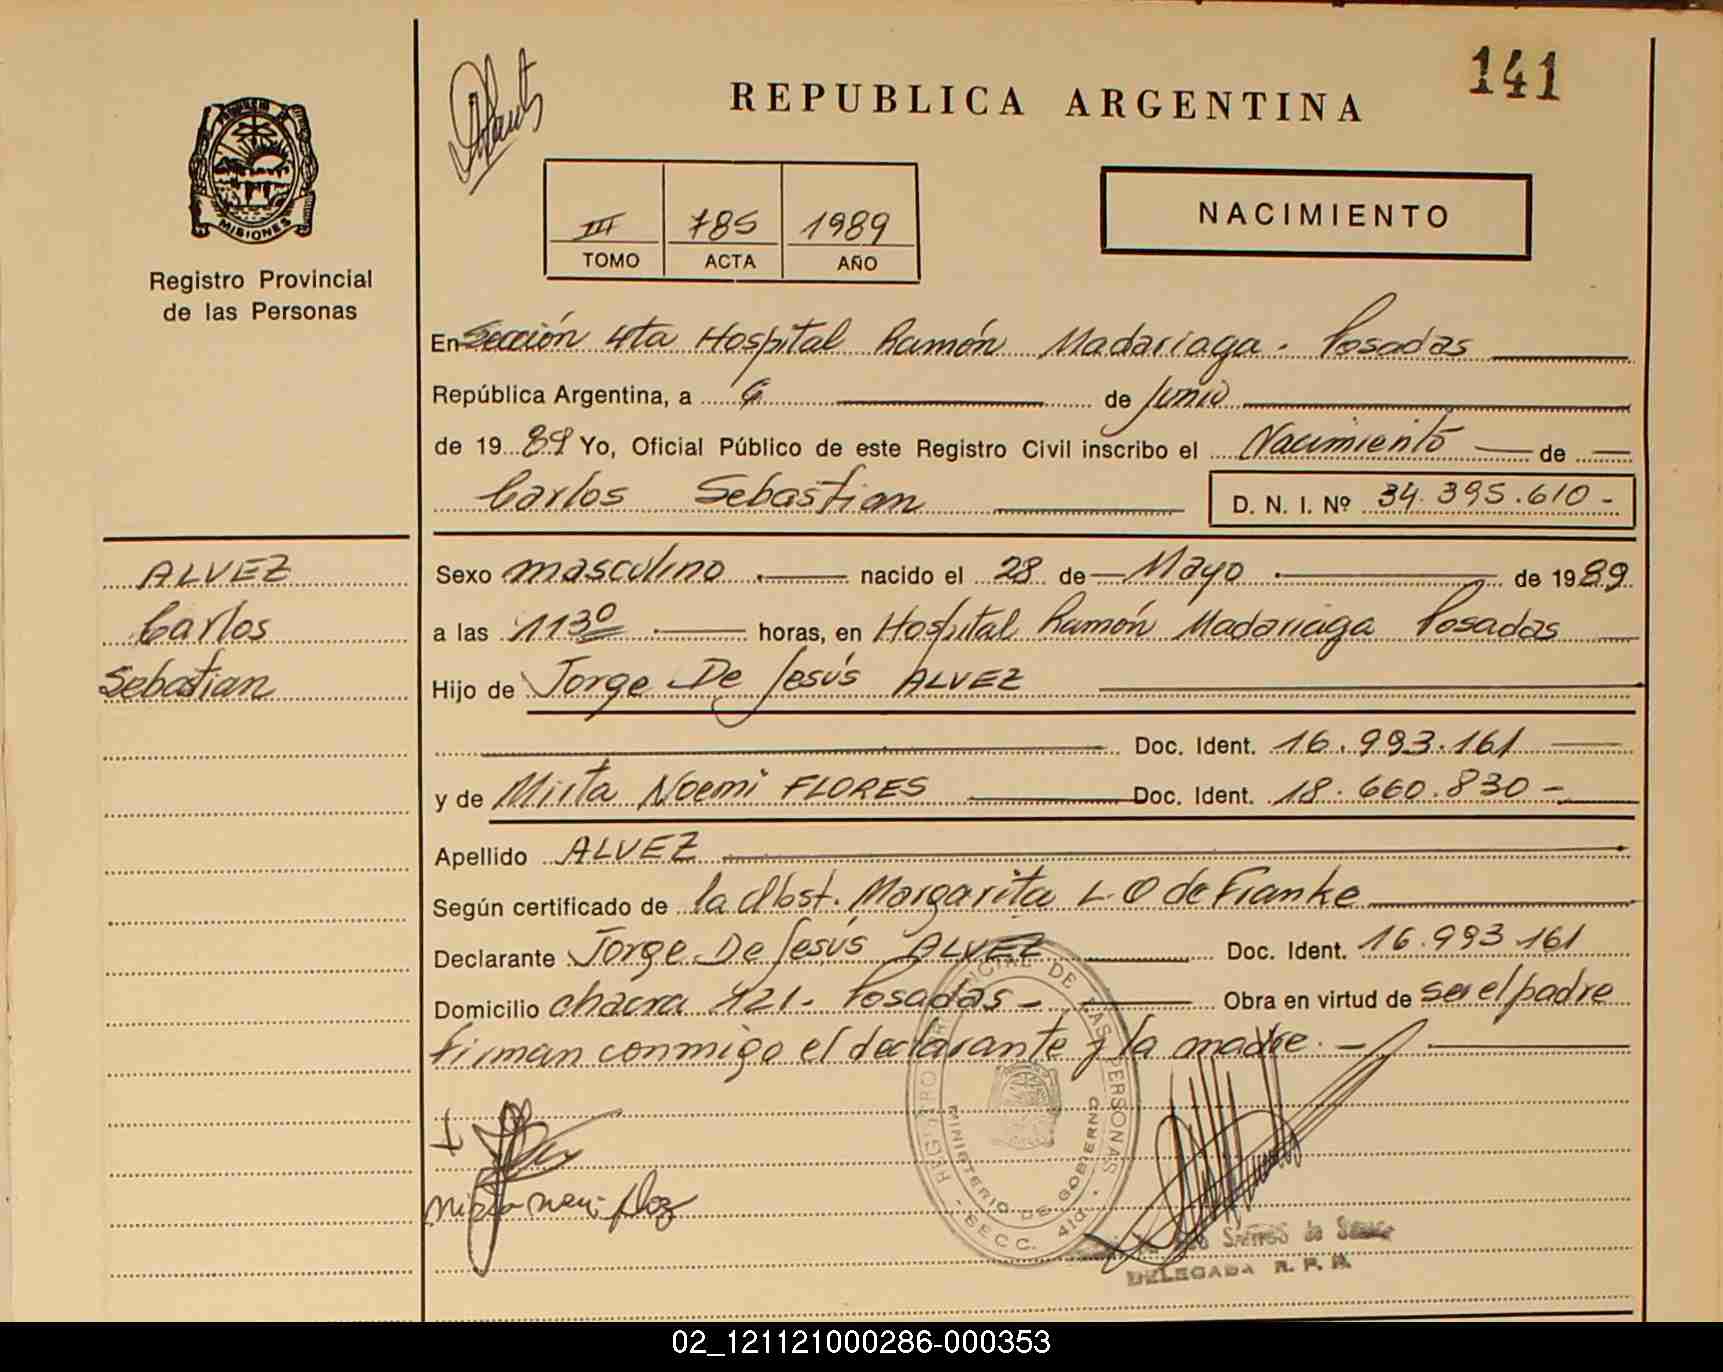 141
REPUBLICA ARGENTINA
MISIONES
Registro Provincial
de las Personas
III 785 1989
TOMO ACTA AÑO
NACIMIENTO
En Sección 4ta Hospital Ramón Madariaga. Posadas
República Argentina, a 6 de Junio
de 1989 Yo, Oficial Público de este Registro Civil inscribo el Nacimiento de
Carlos Sebastian D. N. I. Nº 34.395.610-
ALVEZ
Carlos
Sebastian
Sexo masculino nacido el 28 de Mayo de 1989
a las 1130 horas, en Hospital Ramón Madariaga Posadas
Hijo de Jorge De Jesús ALVEZ
Doc. Ident. 16.993.161
y de Mirta Noemi FLORES Doc. Ident. 18.660.830-
Apellido ALVEZ
Según certificado de la Obst. Margarita L. O de Franke
Declarante Jorge De Jesús ALVEZ Doc. Ident. 16.993.161
Domicilio chacra 121- Posadas- Obra en virtud de ser el padre
firman conmigo el declarante y la madre.-
REGISTRO PROVINCIAL DE LAS PERSONAS
MINISTERIO DE GOBIERNO
SECC. 4ta.
DELEGADA R. P. P.
02_121121000286-000353